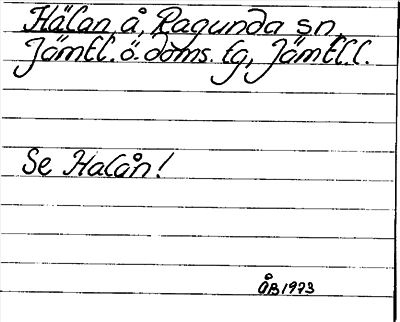 Hälan, å, Ragunda sn,
Jämtl. ö. doms. tg, Jämtl. l.
Se Halån!
ÅB 1973